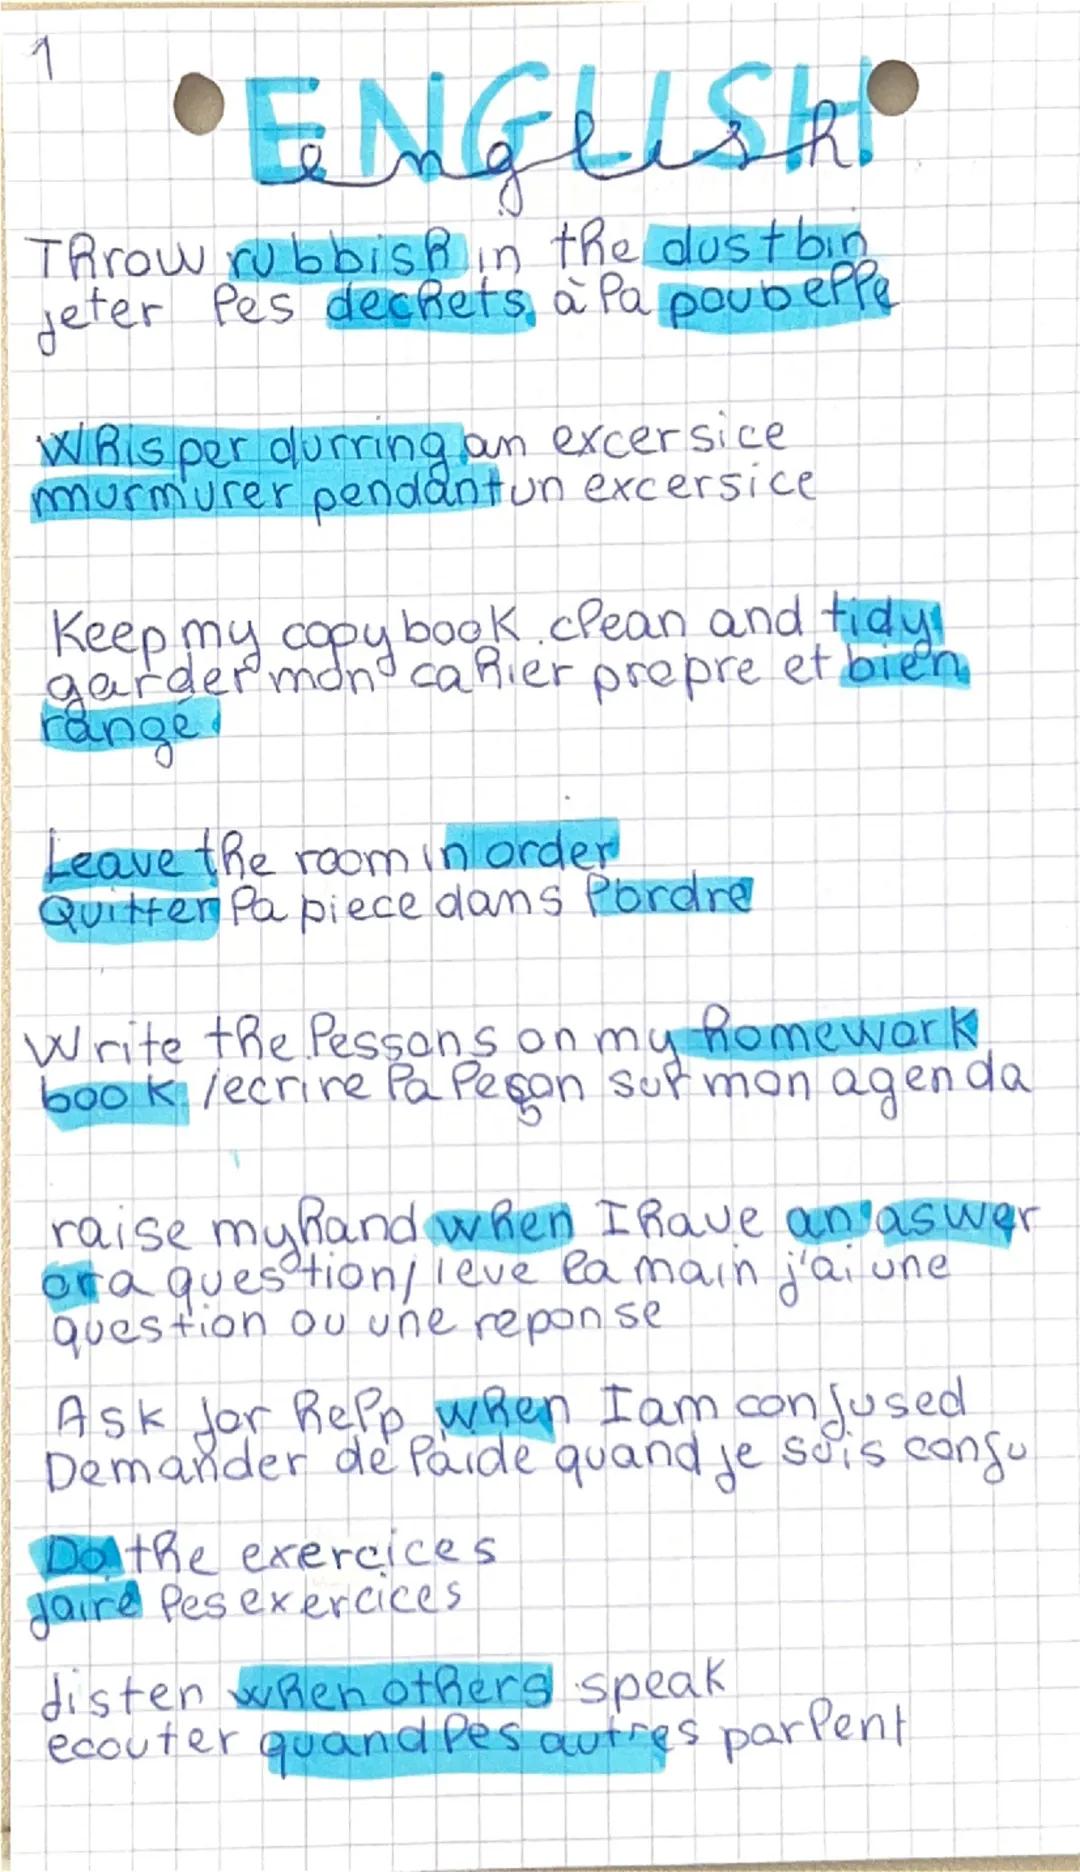 1
ENGLISH
english
Throw rubbish in the dustbin
jeter les dechets à la poubelle
Whisper durring an excersice
murmurer pendant un excersice
Keep my copybook clean and tidy
garder mon cahier propre et bien
rangé
Leave the room in order
Quitter la piece dans l'ordre
Write the lessons on my homework
book /ecrire la leçon sur mon agenda
raise my hand when I have an aswer
or a question/ leve la main j'ai une
question ou une reponse
Ask for help when I am confused
Demander de l'aide quand je suis confu
Do the exercices
faire les exercices
listen when others speak
ecouter quand les autres parlent